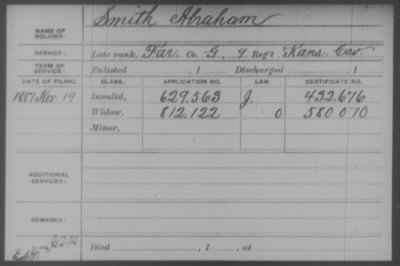 Smith Abraham
NAME OF SOLDIER:
SERVICE: Late rank, Far. Co. G, 9 Reg't Kans. Cav
TERM OF SERVICE: Enlisted , 1 Discharged , 1
DATE OF FILING. CLASS. APPLICATION NO. LAW. CERTIFICATE NO.
1887 Nov. 19 Invalid, 629.563 J. 432.676
Widow, 812.122 O 580.070
Minor,
ADDITIONAL SERVICES:
REMARKS:
Died , 1 , at